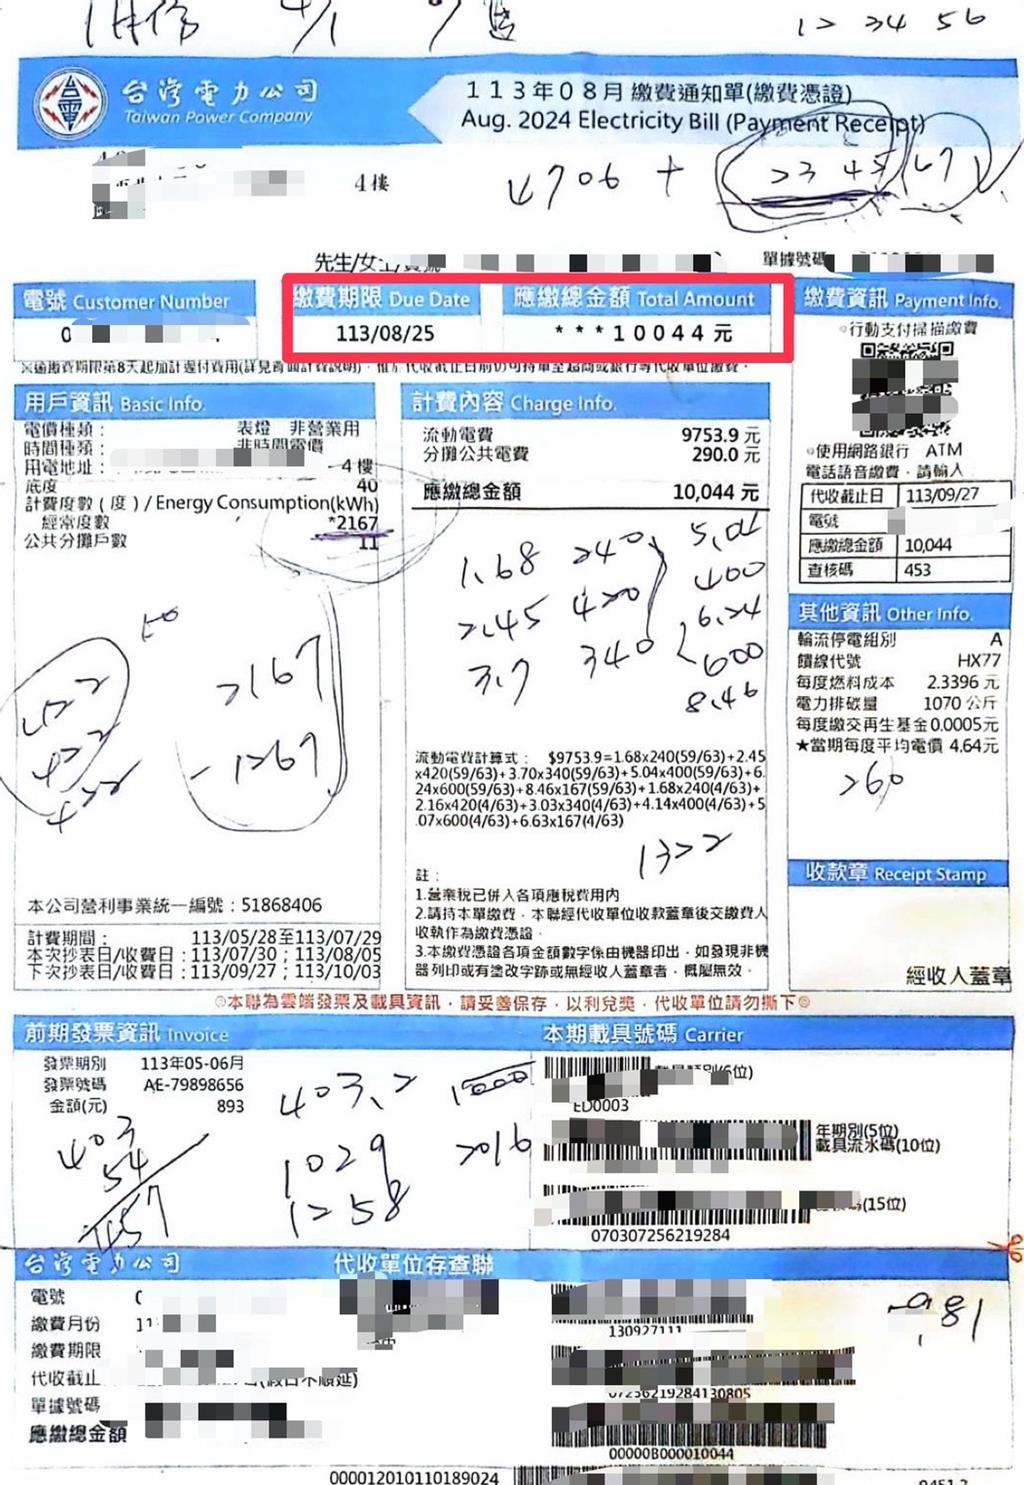 12 34 56
台灣電力公司
Taiwan Power Company
113年08月 繳費通知單(繳費憑證)
Aug. 2024 Electricity Bill (Payment Receipt)
4樓
4706 + 2345
先生/女士/寶號
單據號碼
電號 Customer Number
繳費期限 Due Date
113/08/25
應繳總金額 Total Amount
***10044元
繳費資訊 Payment Info.
行動支付掃描繳費
用戶資訊 Basic Info.
電價種類： 表燈 非營業用
時間種類： 非時間電價
用電地址： 4樓
底度 40
計費度數(度)/Energy Consumption(kWh)
經常度數 *2167
公共分攤戶數 11
計費內容 Charge Info.
流動電費 9753.9 元
分攤公共電費 290.0 元
應繳總金額 10,044 元
使用網路銀行 ATM
電話語音繳費，請輸入
代收截止日 113/09/27
電號
應繳總金額 10,044
查核碼 453
1.68 240 5.04
400
2.45 420 6.24
3.7 340 600
8.46
422
422
422
2167
-1267
其他資訊 Other Info.
輪流停電組別 A
饋線代號 HX77
每度燃料成本 2.3396 元
電力排碳量 1070 公斤
每度繳交再生基金0.0005元
★當期每度平均電價 4.64元
260
流動電費計算式： $9753.9=1.68x240(59/63)+2.45
x420(59/63)+3.70x340(59/63)+5.04x400(59/63)+6.
24x600(59/63)+8.46x167(59/63)+1.68x240(4/63)+
2.16x420(4/63)+3.03x340(4/63)+4.14x400(4/63)+5
.07x600(4/63)+6.63x167(4/63)
1322
註：
1.營業稅已併入各項應稅費用內
2.請持本單繳費，本聯經代收單位收款蓋章後交繳費人
收執作為繳費憑證。
3.本繳費憑證各項金額數字係由機器印出，如發現非機
器列印或有塗改字跡或無經收人蓋章者，概屬無效。
收款章 Receipt Stamp
經收人蓋章
本公司營利事業統一編號：51868406
計費期間： 113/05/28至113/07/29
本次抄表日/收費日：113/07/30；113/08/05
下次抄表日/收費日：113/09/27；113/10/03
◎本聯為雲端發票及載具資訊，請妥善保存，以利兌獎，代收單位請勿撕下◎
前期發票資訊 Invoice
發票期別 113年05-06月
發票號碼 AE-79898656
金額(元) 893
403.2 1000
403
54
457
1029 2016
1258
本期載具號碼 Carrier
ED0003
年期別(5位)
載具流水碼(10位)
(15位)
070307256219284
台灣電力公司
代收單位存查聯
電號
繳費月份
繳費期限
代收截止
(假日不順延)
單據號碼
應繳總金額
130927111
07256219284130805
00000B000010044
981
000012010110189024